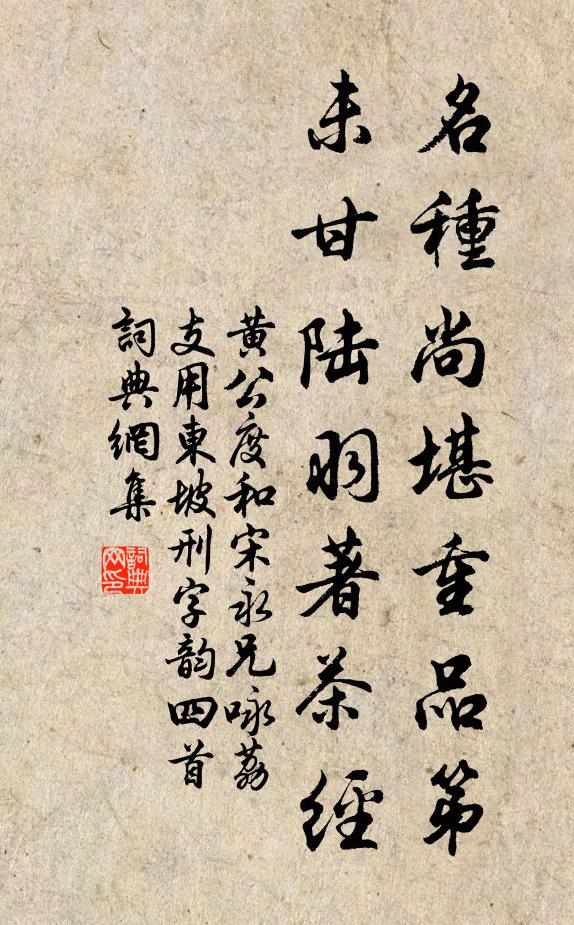 名種尚堪重品第
未甘陆羽著茶經
黄公度和宋永兄咏荔
支用東坡刑字韵四首
詞典網集
詞典
网印